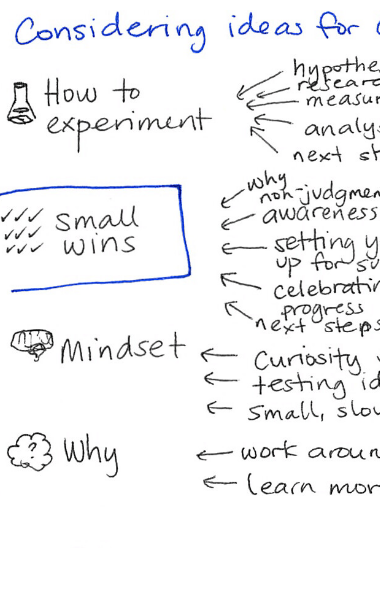 Considering ideas for
How to
experiment
hypothe
researc
measur
analys
next st
✓✓✓ small
✓✓✓ wins
✓✓✓
why
non-judgmen
awareness
setting y
up for su
celebratin
progress
next steps
Mindset
Curiosity
testing id
small, slow
? Why
work aroun
learn mor